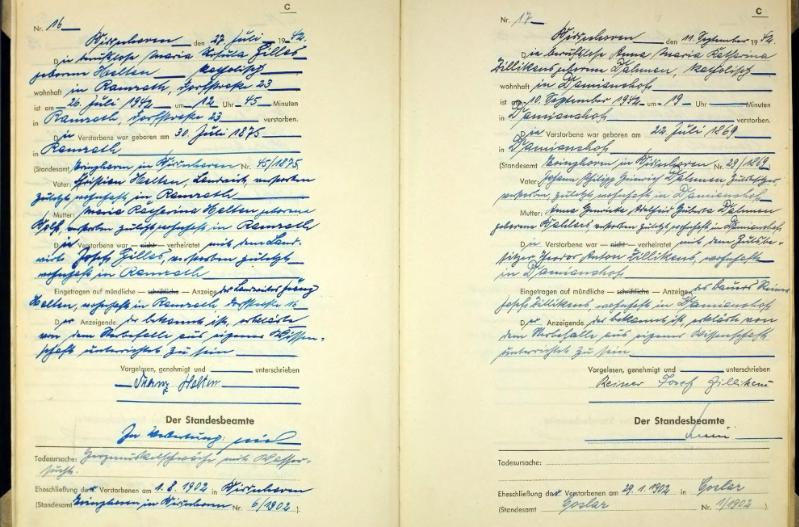 C
Nr. 16
den 27. Juli 1942.
Die berufslose Maria
geborene Helten katholisch
wohnhaft in Ramrath, Dorfstraße 23
ist am 26. Juli 1942 um 12 Uhr 45 Minuten
in Ramrath, Dorfstraße 23 verstorben.
Die Verstorbene war geboren am 30. Juli 1875
in Ramrath
(Standesamt in Nr. 45/1875
Vater: Christian Helten, Landwirt, verstorben
zuletzt wohnhaft in Ramrath
Mutter: Maria Katharina Helten geborene
verstorben zuletzt wohnhaft in Ramrath
Die Verstorbene war – nicht – verheiratet mit dem Land-
wirt Josef verstorben zuletzt
wohnhaft in Ramrath
Eingetragen auf mündliche – schriftliche – Anzeige des Landwirts Franz
Helten, wohnhaft in Ramrath, Dorfstraße 16
Der Anzeigende, der bekannt ist, erklärte
von dem Sterbefalle aus eigener Wissen-
schaft unterrichtet zu sein
Vorgelesen, genehmigt und unterschrieben
Franz Helten
Der Standesbeamte
In Vertretung
Todesursache: Herzmuskelschwäche mit Wasser-
sucht.
Eheschließung der Verstorbenen am 1.8.1902 in
(Standesamt in Nr. 6/1902 ).
C
Nr. 17
den 11. September 1942.
Die berufslose Anna Maria Katharina
Zillikens geborene Dahmen, katholisch
wohnhaft in Damianshof
ist am 10. September 1942 um 19 Uhr Minuten
in Damianshof verstorben.
Die Verstorbene war geboren am 22. Juli 1869
in Damianshof
(Standesamt in Nr. 29/1869
Vater: Johann Philipp Heinrich Dahmen Gutsbesitzer,
verstorben zuletzt wohnhaft in Damianshof
Mutter: Anna Dahmen
geborene verstorben zuletzt wohnhaft in Damianshof
Die Verstorbene war – nicht – verheiratet mit dem Gutsbe-
sitzer Anton Zillikens, wohnhaft
in Damianshof
Eingetragen auf mündliche – schriftliche – Anzeige des Bauers Reiner
Josef Zillikens wohnhaft in Damianshof
Der Anzeigende, der bekannt ist, erklärte von
dem Sterbefalle aus eigener Wissenschaft
unterrichtet zu sein
Vorgelesen, genehmigt und unterschrieben
Reiner Josef Zillikens
Der Standesbeamte
Todesursache:
Eheschließung der Verstorbenen am 29.1.1902 in Goslar
(Standesamt Goslar Nr. 1/1902 ).